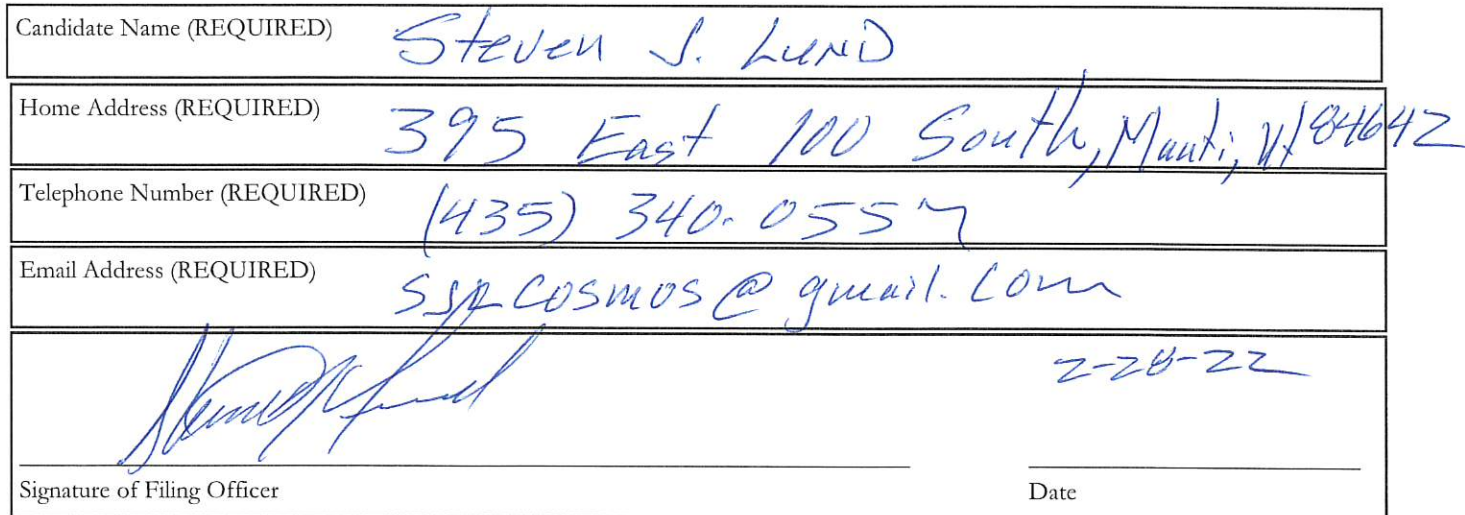 Candidate Name (REQUIRED) Steven J. Lund
Home Address (REQUIRED) 395 East 100 South, Manti, Ut 84642
Telephone Number (REQUIRED) (435) 340-0557
Email Address (REQUIRED) @gmail.com
2-28-22
Signature of Filing Officer Date